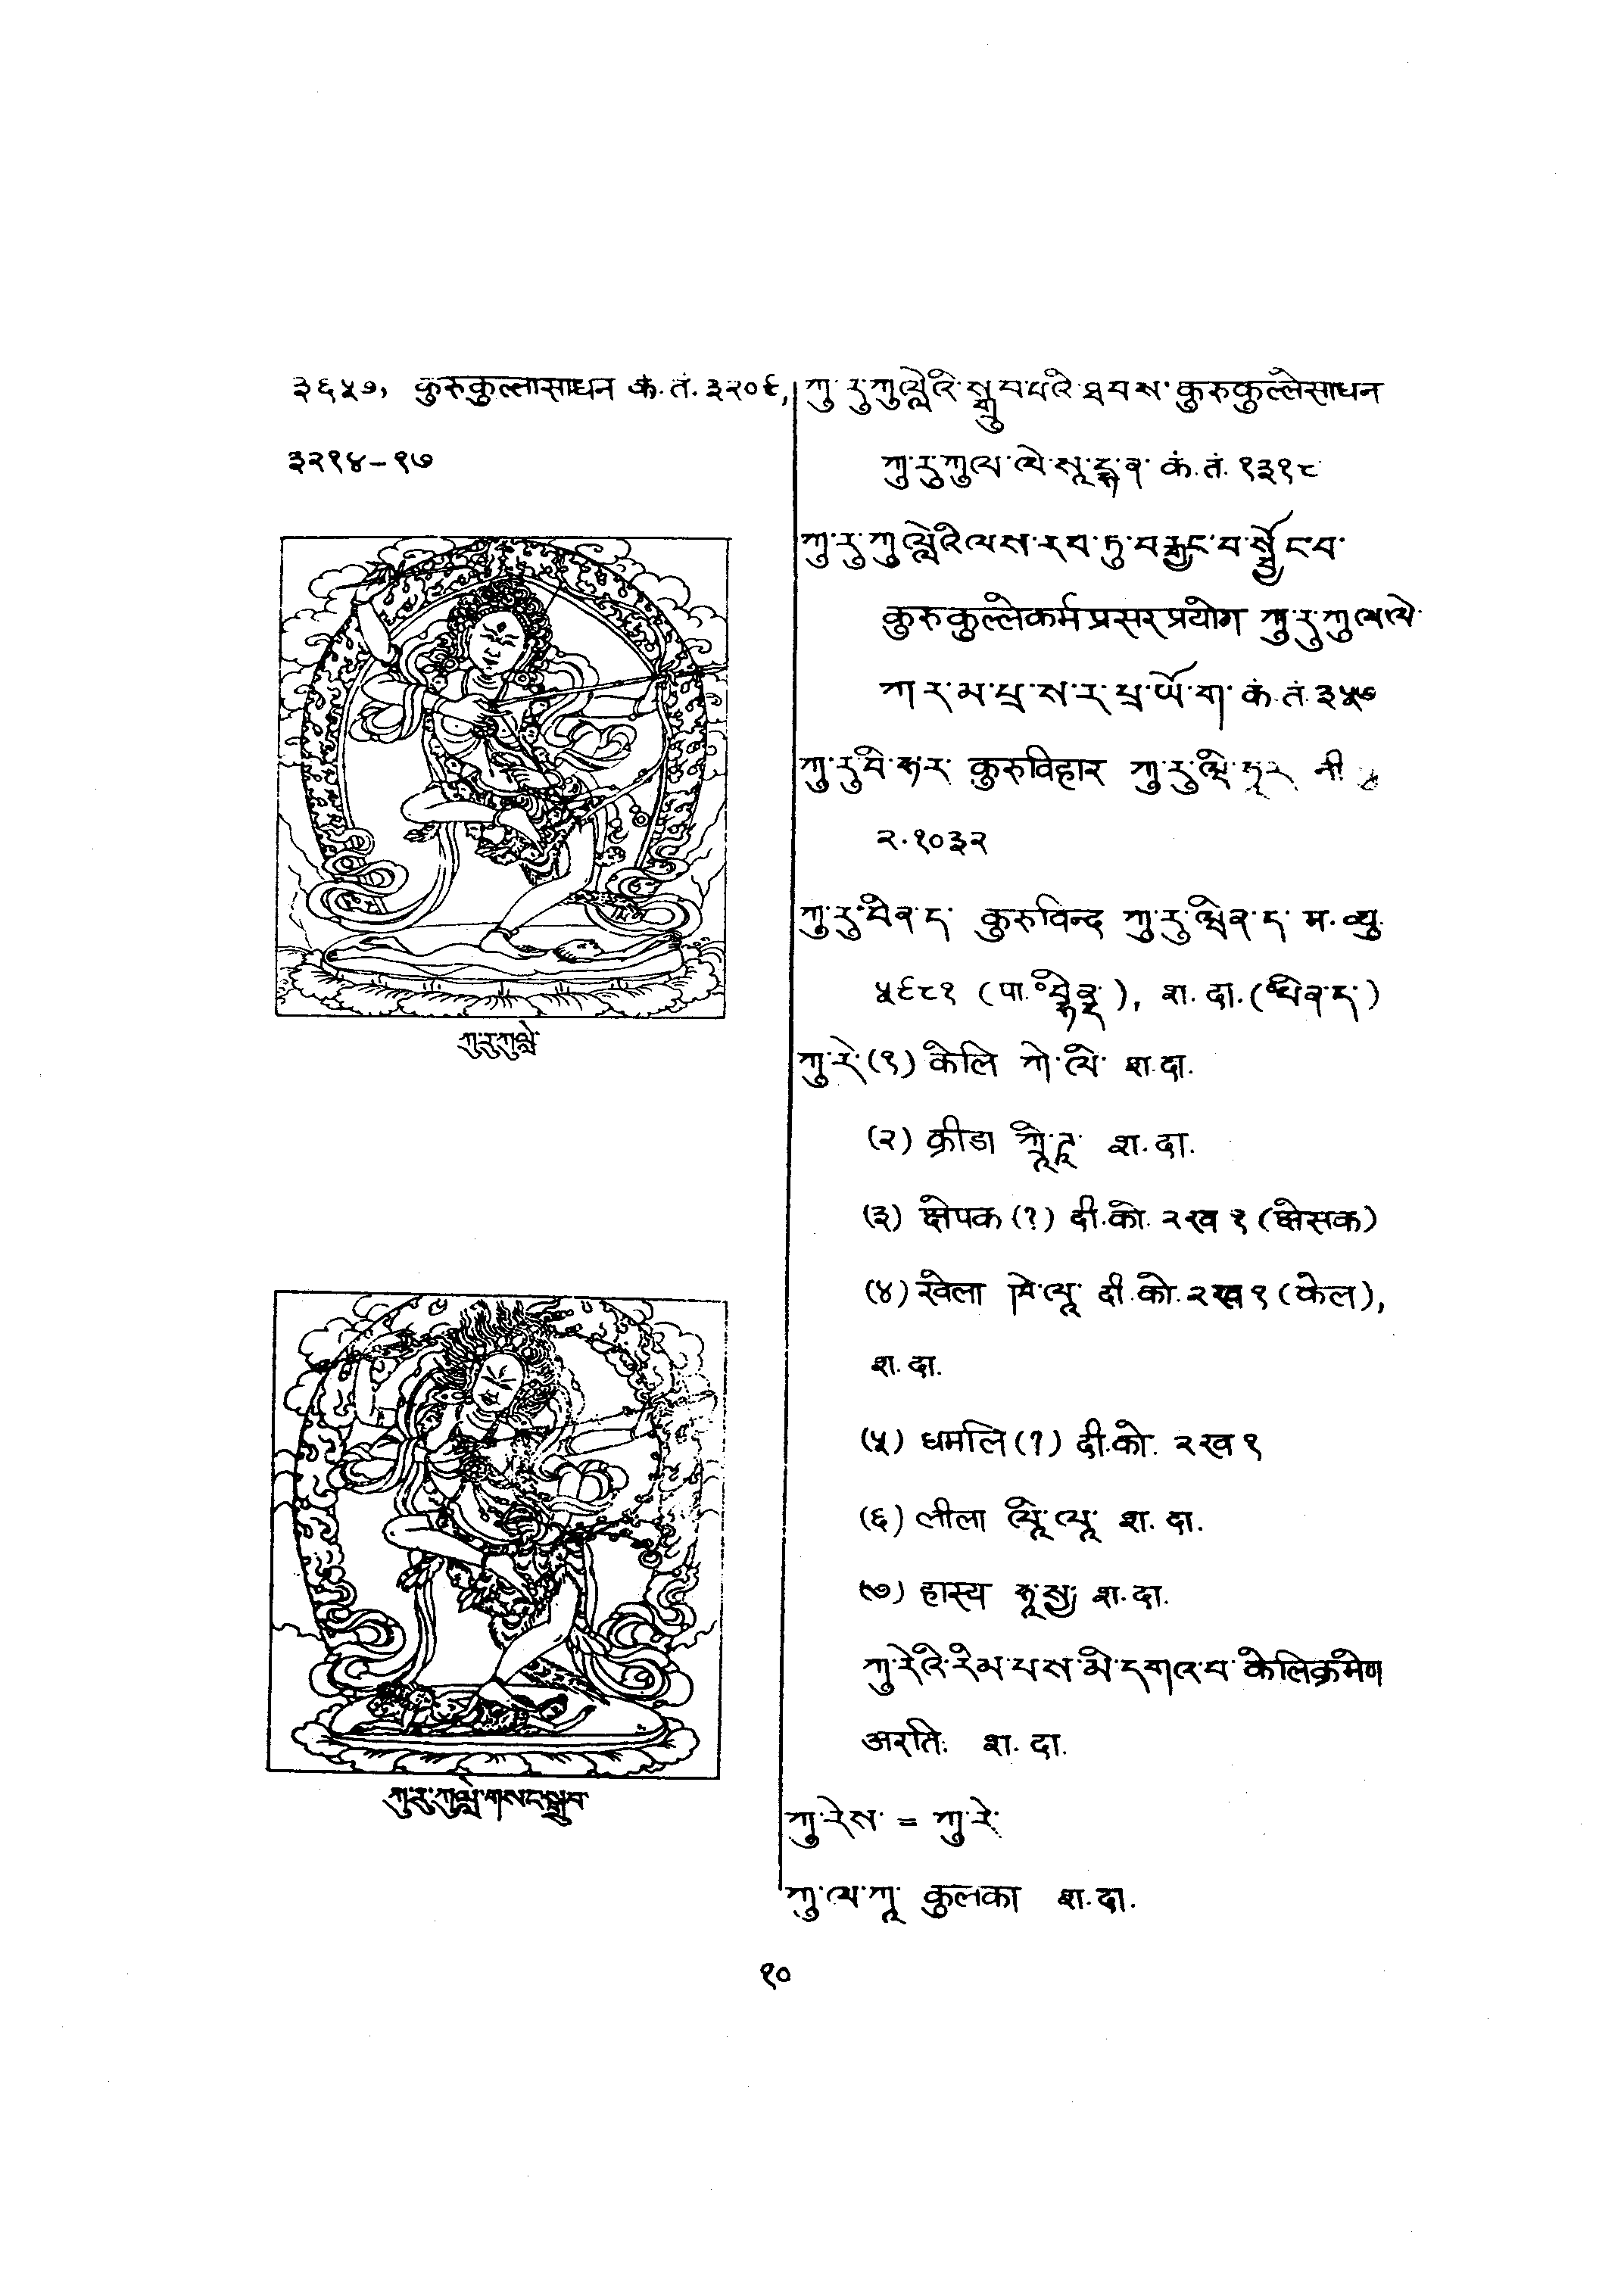 ३६५७, कुरुकुल्लासाधन कं.तं. ३२०६,
३२१४-१७
ཀུ་རུ་ཀུལླེ
ཀུ་རུ་ཀུལླེ་གསང་སྒྲུབ
ཀུ་རུ་ཀུལླེའི་སྒྲུབ་པའི་ཐབས་ कुरुकुल्लेसाधन
ཀུ་རུ་ཀུལ་ལེ་སཱ་དྷ་ན་ कं.तं. १३१८
ཀུ་རུ་ཀུལླེའི་ལས་རབ་ཏུ་བརྒྱང་བ་སྦྱོང་བ་
कुरुकुल्लेकर्मप्रसरप्रयोग ཀུ་རུ་ཀུལ་ལེ་
ཀར་མ་པྲ་ས་ར་པྲ་ཡོ་ག་ कं.तं. ३५७
ཀུ་རུ་བི་ཧར་ कुरुविहार
२.१०३२
ཀུ་རུ་བིན་ད་ कुरुविन्द ཀུ་རུ་ཝིན་ད་ म.व्यु.
५९८१ (पा.), श.दा. (°བིན་ད་)
ཀུ་རེ་ (१) केलि ཀེ་ལི་ श.दा.
(२) क्रीडा ཀྲཱི་ཌཱ་ श.दा.
(३) क्षेपक (?) दी.को. २ख१ (क्षेसक)
(४) खेला ཁེ་ལཱ་ दी.को. २ख१ (केल),
श.दा.
(५) धर्मालि (?) दी.को. २ख१
(६) लीला ལཱི་ལཱ་ श.दा.
(७) हास्य ཧཱ་སྱ་ श.दा.
ཀུ་རེའི་རིམ་པས་མི་དགའ་བ་ केलिक्रमेण
अरतिः श.दा.
ཀུ་རེས་ = ཀུ་རེ་
ཀུ་ལ་ཀཱ་ कुलका श.दा.
१०